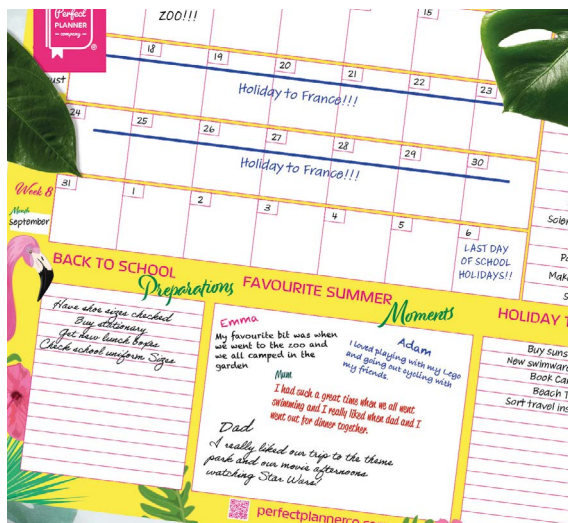 Perfect
PLANNER
company
ZOO!!!
15
18
19
20
21
22
23
Holiday to France!!!
24
25
26
27
28
29
30
Holiday to France!!!
31
1
2
3
4
5
6
Week 8
Month
September
LAST DAY
OF SCHOOL
HOLIDAYS!!
BACK TO SCHOOL
Preparations
Have shoe sizes checked
Buy stationary
Get new lunch boxes
Check school uniform Sizes
FAVOURITE SUMMER
Moments
Emma
My favourite bit was when
we went to the zoo and
we all camped in the
garden
Adam
I loved playing with my Lego
and going out cycling with
my friends.
Mum
I had such a great time when we all went
swimming and I really liked when dad and I
went out for dinner together.
Dad
I really liked our trip to the theme
park and our movie afternoons
watching Star Wars!
HOLIDAY
Buy suns
New swimware
Book Ca
Beach T
Sort travel ins
perfectplannerco